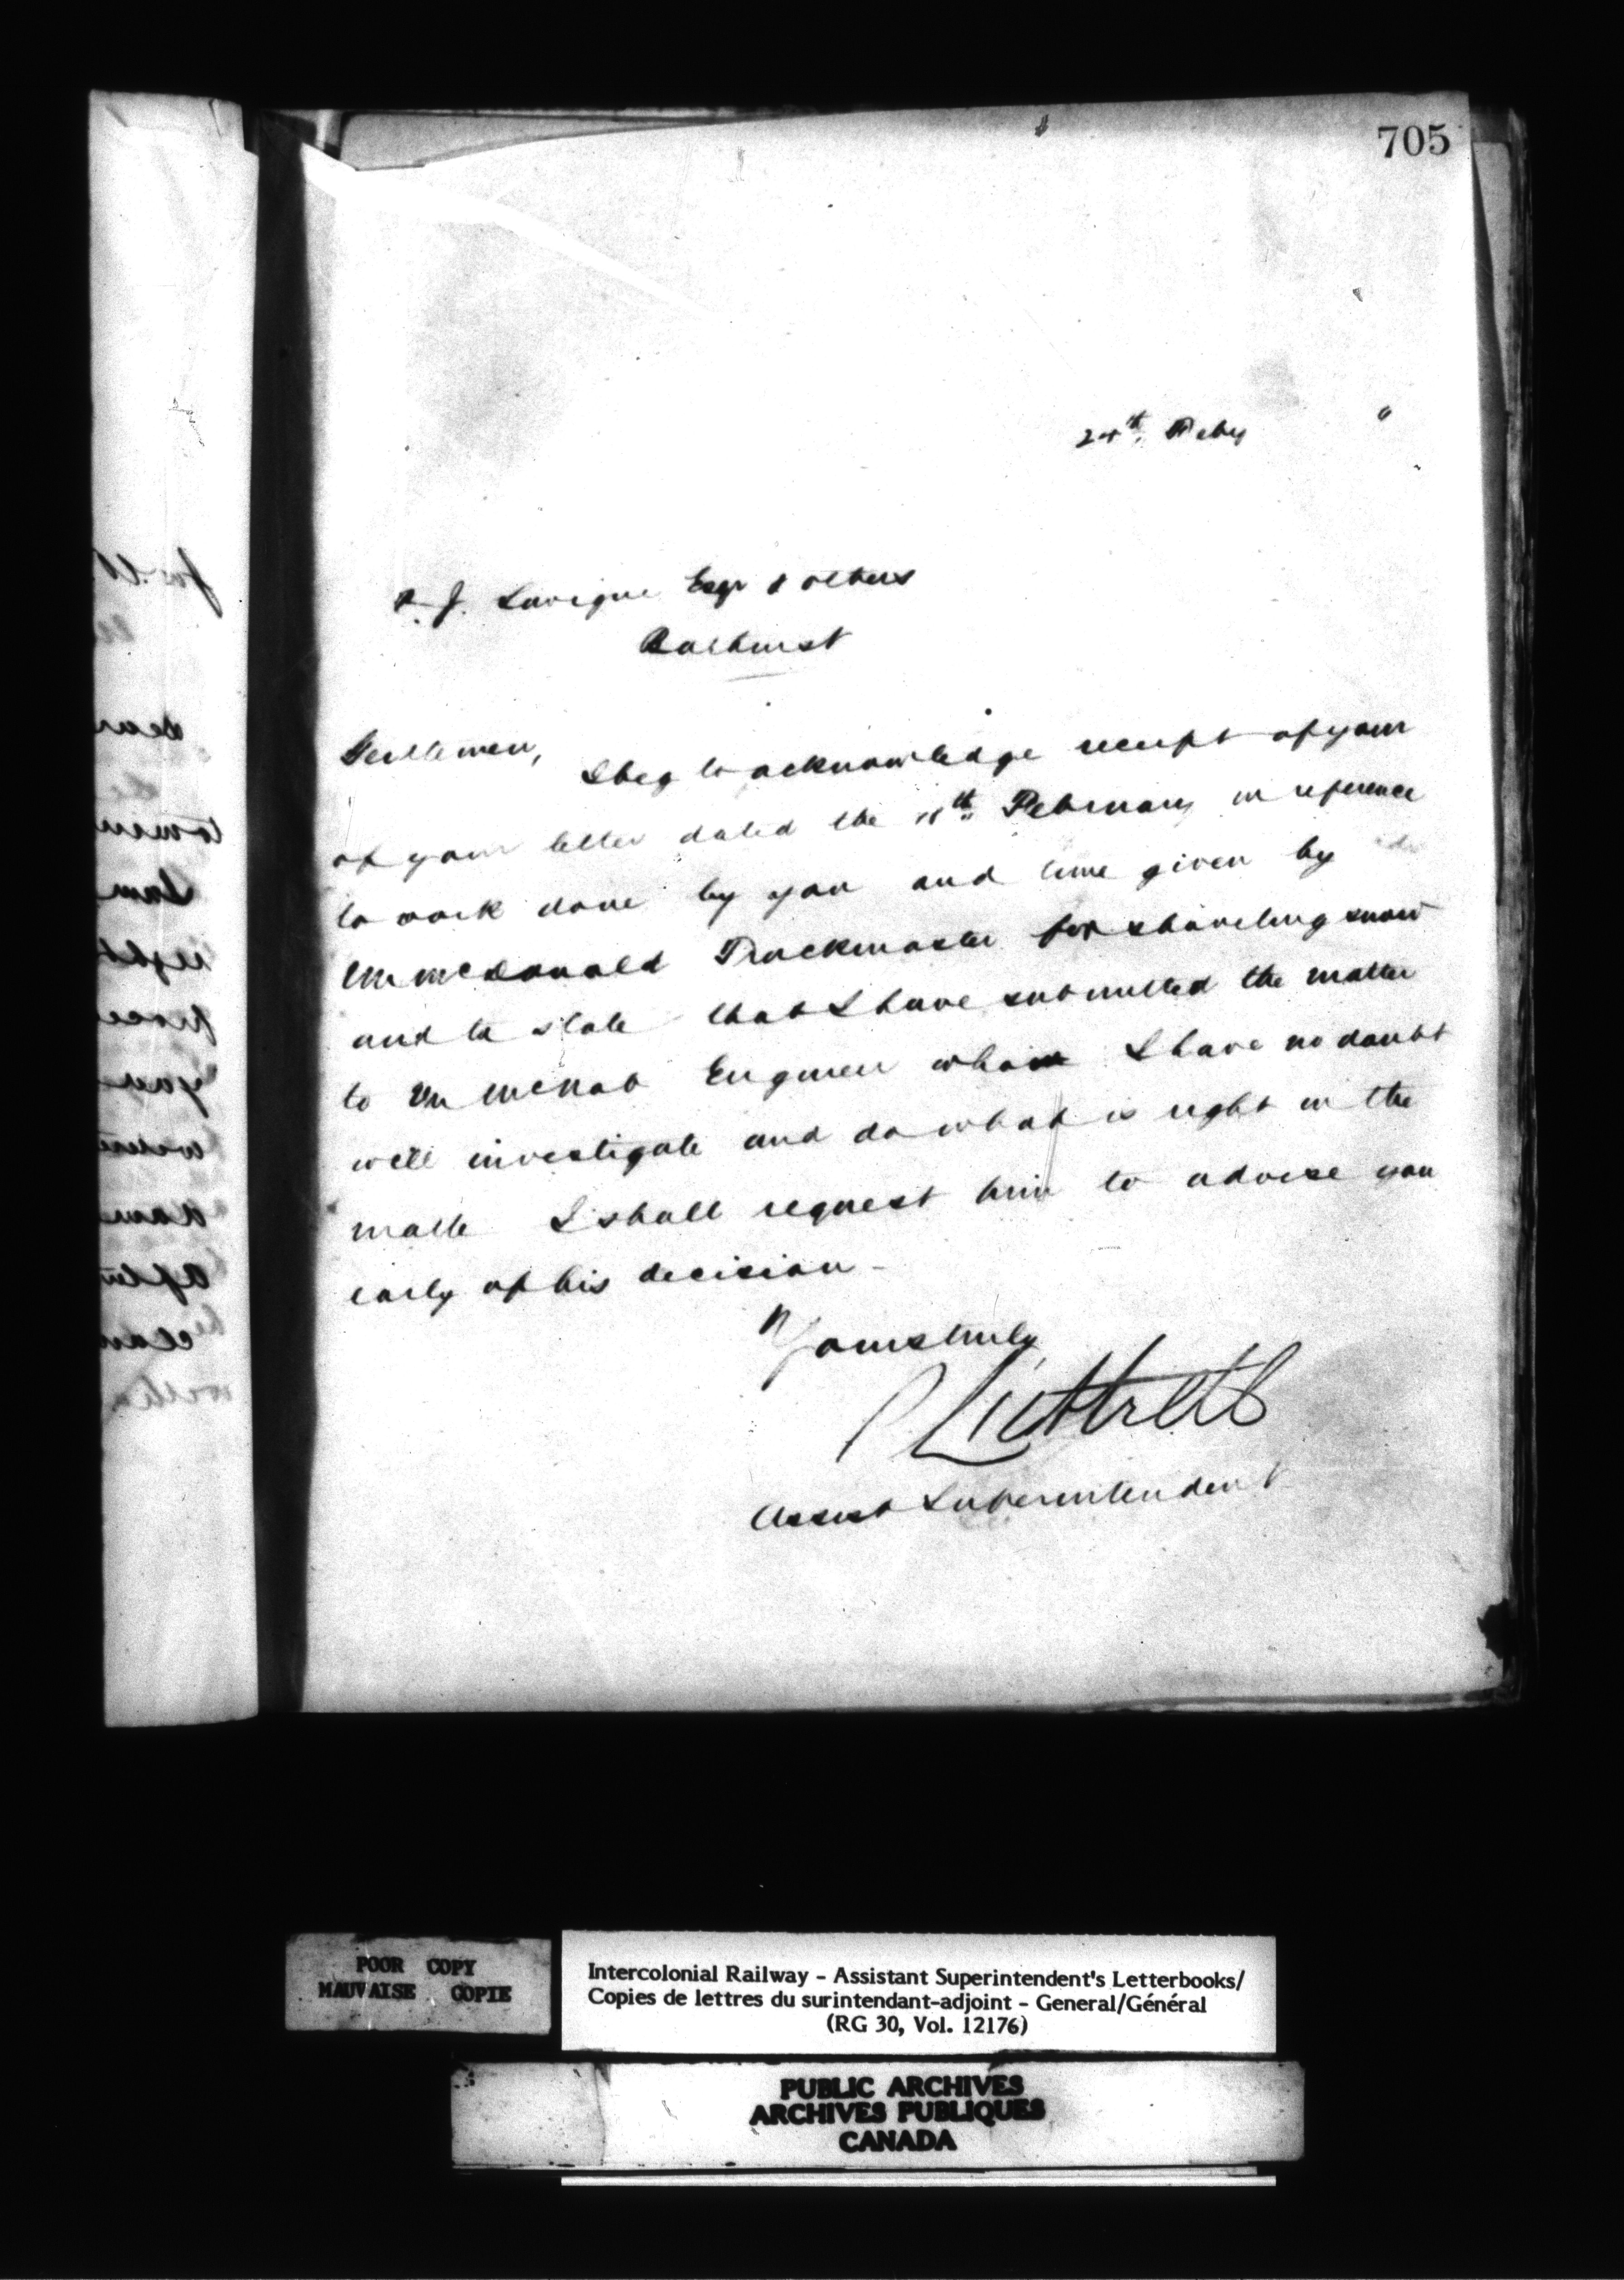 705
24th Feby "
P. J. Lavigne Esqr & others
Bathurst
Gentlemen,
I beg to acknowledge receipt of your
of your letter dated the 18th February in reference
to work done by you and time given by
Mr McDonald Trackmaster for shoveling snow
and to state that I have submitted the matter
to Mr McNab Engineer whom I have no doubt
will investigate and do what is right in the
matte I shall request him to advise you
early of his decision -
Yours truly
Luttrell
Assist Superintendent
POOR COPY
MAUVAISE COPIE
Intercolonial Railway - Assistant Superintendent's Letterbooks/
Copies de lettres du surintendant-adjoint - General/Général
(RG 30, Vol. 12176)
PUBLIC ARCHIVES
ARCHIVES PUBLIQUES
CANADA